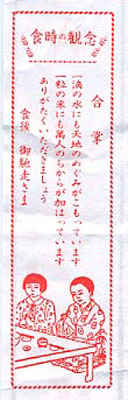 食時の観念
合掌
一滴の水にも天地のめぐみがこもっています
一粒の米にも萬人のちからが加はっています
ありがたくいただきましょう
食後 御馳走さま